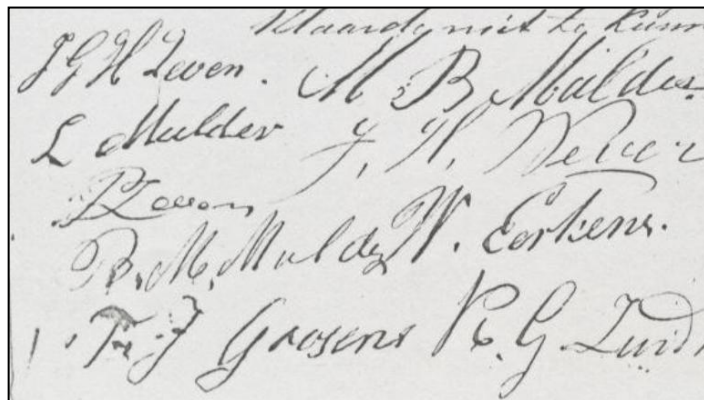 klaarde niet te kunn
J G H Zeven. M. B. Mulder
L Mulder J. H.
P Zeven
B. M. Mulder W. Eerkens.
F. J Goosens R. G Zuid